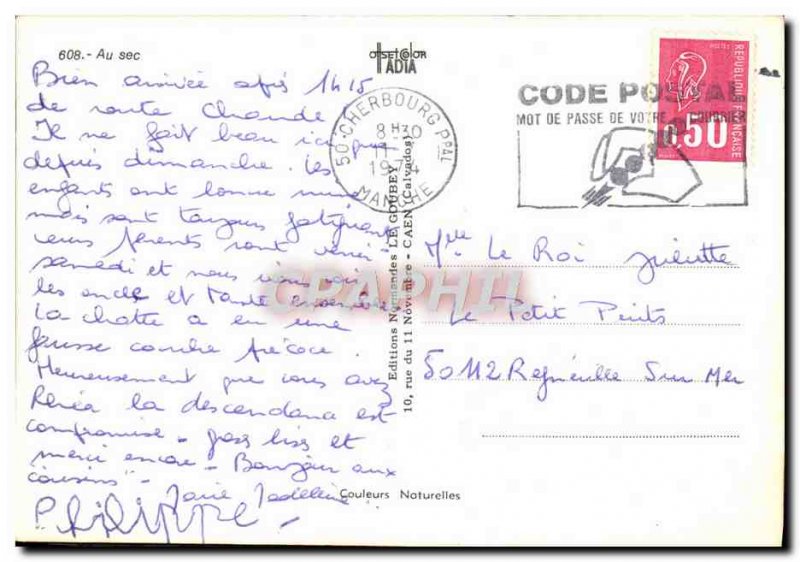 608.- Au sec
OFFSET COLOR
IADIA
Bien arrivée après 1h15
de route chaude
Il ne fait beau ici que
depuis dimanche. Les
enfants ont bonne mine
mais sont toujours fatigants
leurs parents sont venus
samedi et nous
les oncle et tante ensemble
La chatte a eu une
fausse couche précoce.
Heureusement que vous avez
la descendance est
compromise - gros bises et
merci encore - Bonjour aux
cousins -
Marie Madeleine
Philippe -
50 CHERBOURG PPAL
8H30
11
1974
MANCHE
CODE POSTAL
MOT DE PASSE DE VOTRE COURRIER
POSTES
REPUBLIQUE FRANÇAISE
0,50
Editions Normandes LE GOUBEY
10, rue du 11 Novembre - CAEN (Calvados)
CPAPHIL
Mlle Le Roi Juliette
Le Petit Puits
50112 Regnéville Sur Mer
Couleurs Naturelles